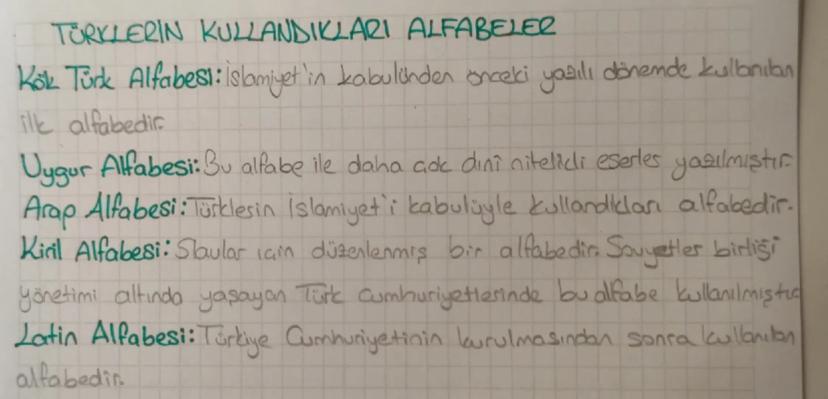 TÜRKLERİN KULLANDIKLARI ALFABELER
Kök Türk Alfabesi: İslamiyet'in kabulünden önceki yazılı dönemde kullanılan
ilk alfabedir.
Uygur Alfabesi: Bu alfabe ile daha çok dinî nitelikli eserler yazılmıştır.
Arap Alfabesi: Türklerin İslamiyet'i kabulüyle kullandıkları alfabedir.
Kiril Alfabesi: Slavlar için düzenlenmiş bir alfabedir. Sovyetler birliği
yönetimi altında yaşayan Türk cumhuriyetlerinde bu alfabe kullanılmıştır
Latin Alfabesi: Türkiye Cumhuriyetinin kurulmasından sonra kullanılan
alfabedir.